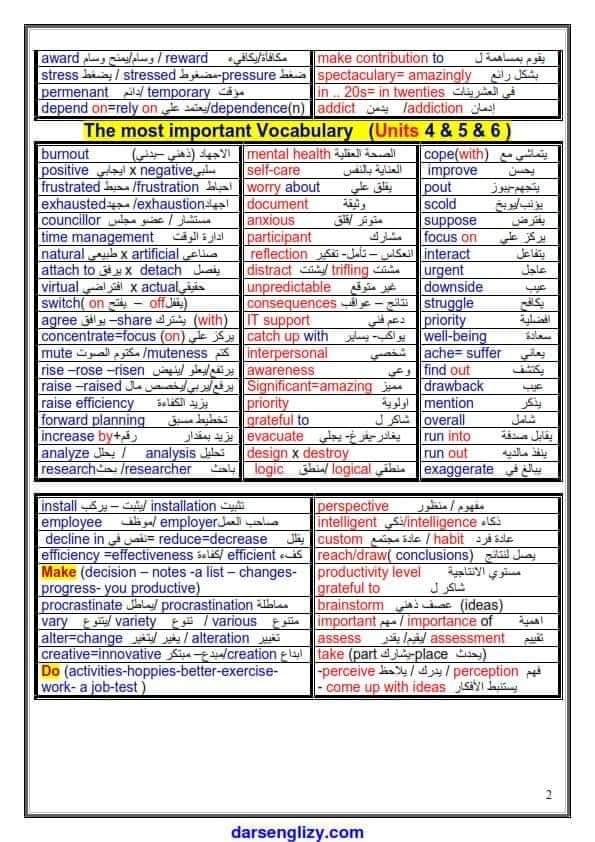 award وسام/يمنح وسام / reward مكافأة/يكافيء
make contribution to يقوم بمساهمة ل
stress يضغط / stressed مضغوط-pressure ضغط
spectaculary= amazingly بشكل رائع
permenant دائم/ temporary مؤقت
in .. 20s= in twenties في العشرينات
depend on=rely on يعتمد علي/dependence(n)
addict يدمن /addiction إدمان
The most important Vocabulary (Units 4 & 5 & 6 )
burnout الاجهاد (ذهني –بدني)
mental health الصحة العقلية
cope(with) يتماشي مع
positive ايجابي x negative سلبي
self-care العناية بالنفس
improve يحسن
frustrated محبط /frustration احباط
worry about يقلق علي
pout يتجهم-يبوز
exhausted مجهد/exhaustion اجهاد
document وثيقة
scold يؤنب/يوبخ
councillor مستشار / عضو مجلس
anxious متوتر /قلق
suppose يفترض
time management ادارة الوقت
participant مشارك
focus on يركز علي
natural طبيعي x artificial صناعي
reflection انعكاس – تأمل- تفكير
interact يتفاعل
attach to يرفق x detach يفصل
distract يشتت/ trifling مشتت
urgent عاجل
virtual افتراضي x actual حقيقي
unpredictable غير متوقع
downside عيب
switch( on يفتح – off يقفل)
consequences نتائج – عواقب
struggle يكافح
agree يوافق –share يشترك (with)
IT support دعم فني
priority افضلية
concentrate=focus (on) يركز علي
catch up with يواكب- يساير
well-being سعادة
mute مكتوم الصوت /muteness كتم
interpersonal شخصي
ache= suffer يعاني
rise –rose –risen يرتفع/يعلو /ينهض
awareness وعي
find out يكتشف
raise –raised يرفع/يربي/يخصص مال
Significant=amazing مميز
drawback عيب
raise efficiency يزيد الكفاءة
priority اولوية
mention يذكر
forward planning تخطيط مسبق
grateful to شاكر ل
overall شامل
increase by+رقم يزيد بمقدار
evacuate يغادر-يفرغ- يجلي
run into يقابل صدفة
analyze يحلل / analysis تحليل
design x destroy
run out ينفذ مالديه
research بحث/researcher باحث
logic منطق/ logical منطقي
exaggerate يبالغ في
install يثبت – يركب/ installation تثبيت
perspective مفهوم / منظور
employee موظف/ employer صاحب العمل
intelligent ذكي/intelligence ذكاء
decline in نقص في= reduce=decrease يقلل
custom عادة مجتمع / habit عادة فرد
efficiency =effectiveness كفاءة/ efficient كفء
reach/draw( conclusions) يصل لنتائج
Make (decision – notes -a list – changes-
progress- you productive)
productivity level مستوي الانتاجية
grateful to شاكر ل
procrastinate يماطل/ procrastination مماطلة
brainstorm عصف ذهني (ideas)
vary يتنوع/ variety تنوع / various متنوع
important مهم / importance of اهمية
alter=change يغير /يتغير / alteration تغيير
assess يقيم/يقدر / assessment تقييم
creative=innovative مبدع– مبتكر/creation ابداع
take (part يشارك-place يحدث)
Do (activities-hoppies-better-exercise-
work- a job-test )
-perceive يدرك / يلاحظ / perception فهم
- come up with ideas يستنبط الأفكار
2
darsenglizy.com